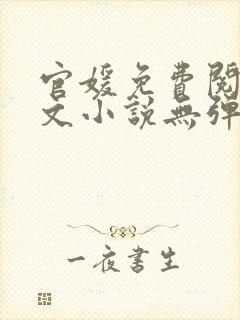 官媛免費閱
文小說無彈
一夜書生